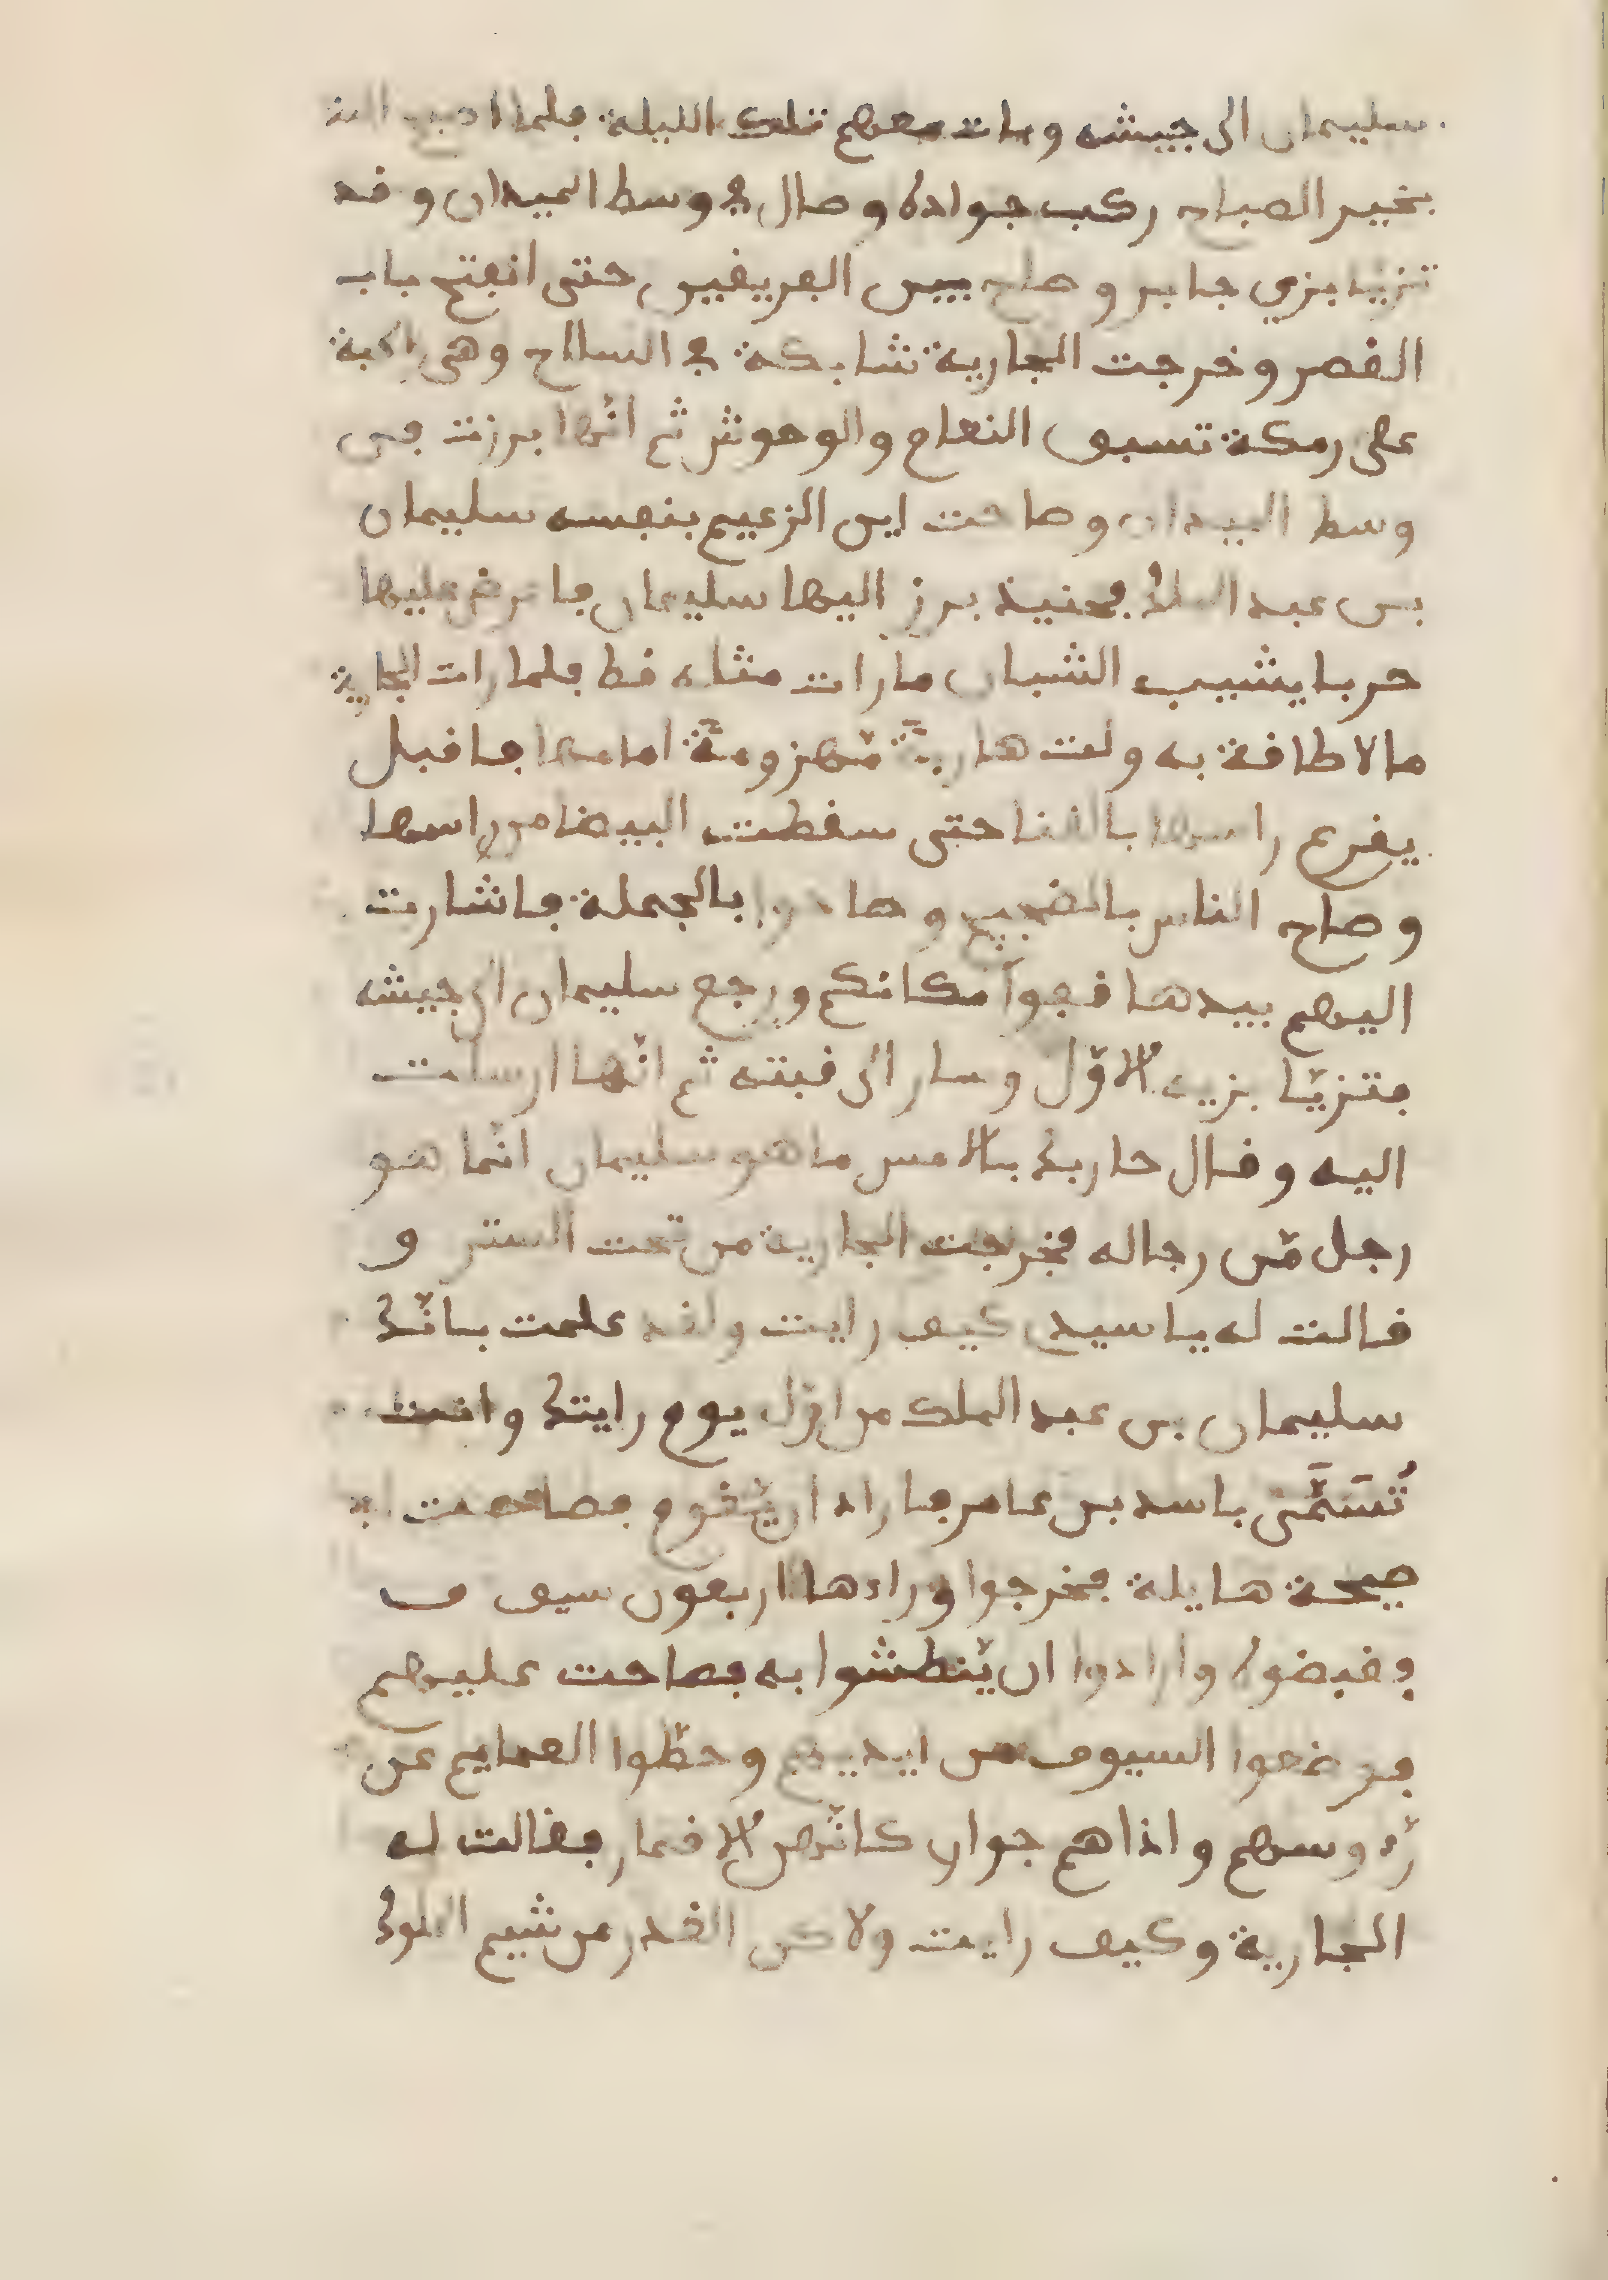 سليمان الى جيشه وبات معهم تلك الليلة فلما اصبح الله
بخير الصباح ركب جواده وصال في وسط الميدان وقد
تزيد بزي جابر وصاح بين الفريقين حتى انفتح باب
القصر وخرجت الجارية شابكة في السلاح وهي راكبة
على رمكة تسبق النعام والوحوش ثم انّها برزت في
وسط الميدان وصاحت اين الزعيم بنفسه سليمان
بن عبد الملك فحنيذ برز اليها سليمان فاعرض عليها
حربا يشيب الشبان ما رات مثله قط فلما رات الجارية
ما لا طاقة به ولت هاربةً مّهزومةً امامها فاقبل
يقرع راسها بالقنا حتى سقطت البيضا من راسها
وصاح الناس بالضجيج وصاحوا بالجملة فاشارت
اليهم بيدها قفوا مكانكم ورجع سليمان الى جيشه
فتزيّا بزيه الاوّل وسار الى قبته ثم انّها ارسلت
اليه وقال حاربك بالامس ما هو سليمان انّما هو
رجل مّن رجاله فخرجت الجارية من تحت الستر و
قالت له يا سيدي كيف رايت ولقد علمت بانّك
سليمان بن عبد الملك من اوّل يوم رايتك وانت
تُسَمَّى باسد بن عامر فاراد ان يّقوم فصاحت به
صيحة هايلة فخرجوا وراءها اربعون سيف
وقبضوه وارادوا ان يّنطشوا به فصاحت عليهم
فوضعوا السيوف من ايديهم وحطّوا العمايم عن
رّءوسهم واذا هم جوار كانّهن الاقمار فقالت له
الجارية وكيف رايت ولاكن الغدر من شيم الملوك